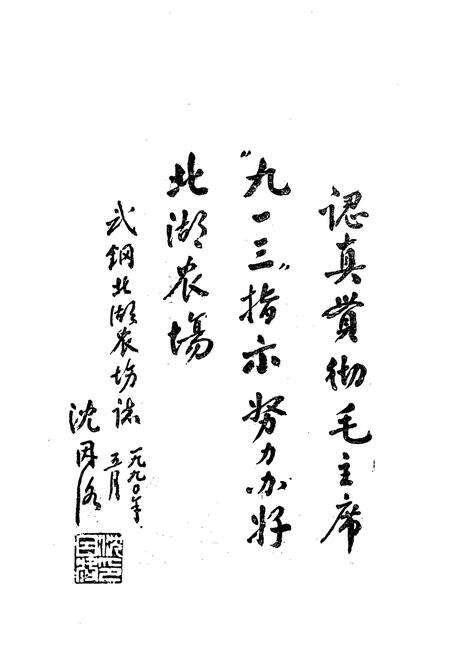 認真貫彻毛主席
“九一三”指示努力办好
北湖农場
武鋼北湖农场誌
一九九〇年
五月
沈因洛